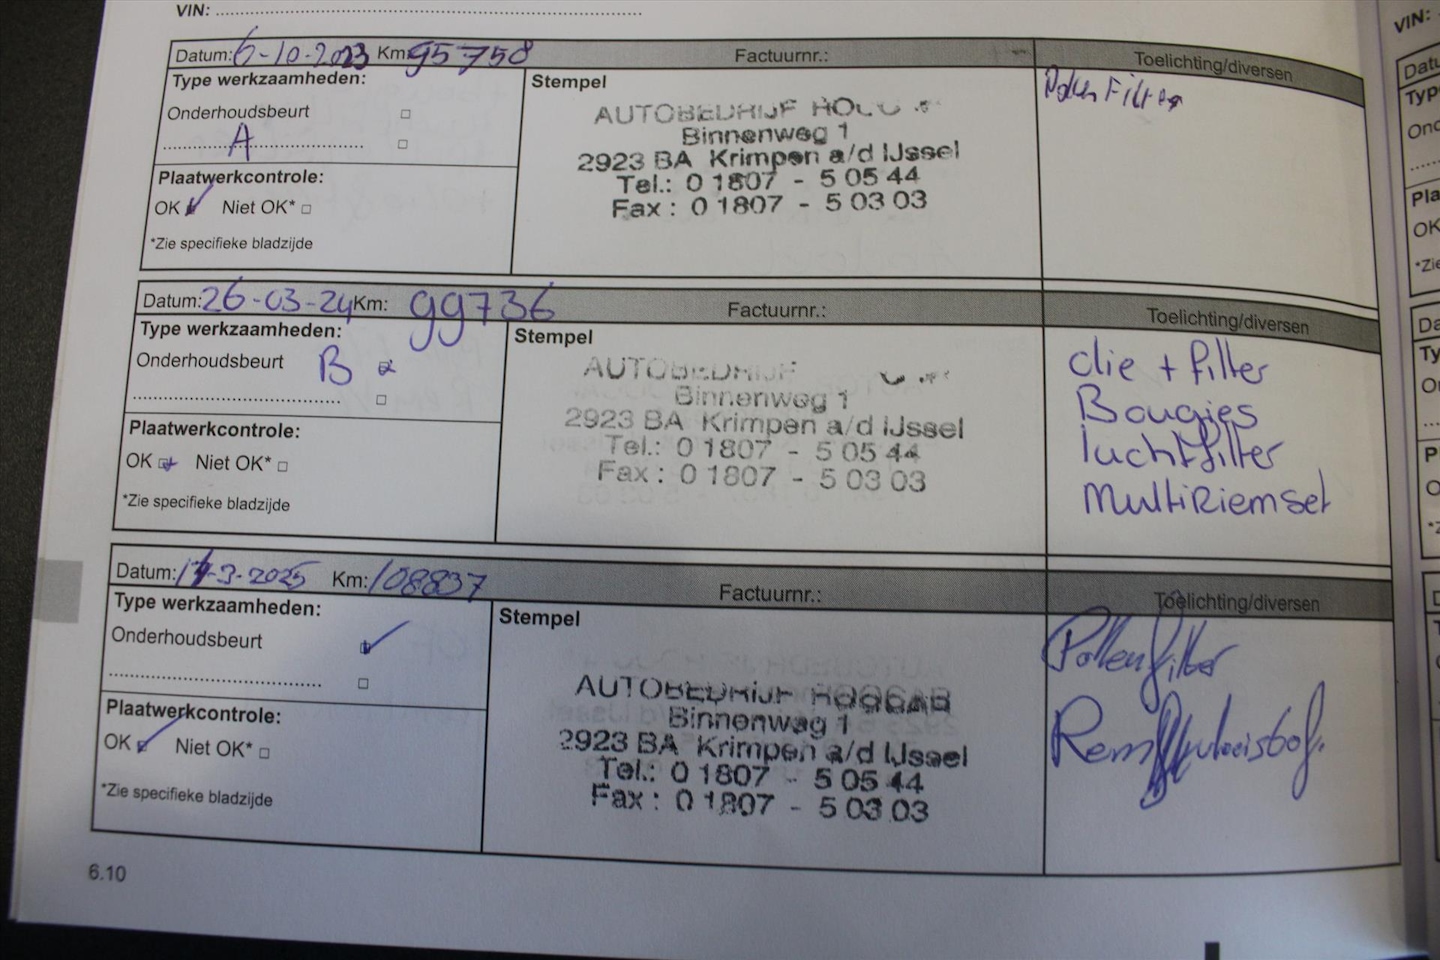 VIN:
Datum: 6-10-2023 Km: 95758 Factuurnr.: Toelichting/diversen
Type werkzaamheden:
Onderhoudsbeurt
A
Plaatwerkcontrole:
OK Niet OK*
*Zie specifieke bladzijde
Stempel
AUTOBEDRIJF
Binnenweg 1
2923 BA Krimpen a/d IJssel
Tel.: 0 1807 - 5 05 44
Fax : 0 1807 - 5 03 03
Pollen Filter
Datum: 26-03-24 Km: 99736 Factuurnr.: Toelichting/diversen
Type werkzaamheden:
Onderhoudsbeurt B
Plaatwerkcontrole:
OK Niet OK*
*Zie specifieke bladzijde
Stempel
AUTOBEDRIJF
Binnenweg 1
2923 BA Krimpen a/d IJssel
Tel.: 0 1807 - 5 05 44
Fax : 0 1807 - 5 03 03
olie + filter
Bougies
luchtfilter
multiriemset
Datum: 17-3-2025 Km: 108837 Factuurnr.: Toelichting/diversen
Type werkzaamheden:
Onderhoudsbeurt
Plaatwerkcontrole:
OK Niet OK*
*Zie specifieke bladzijde
Stempel
AUTOBEDRIJF
Binnenweg 1
2923 BA Krimpen a/d IJssel
Tel.: 0 1807 - 5 05 44
Fax : 0 1807 - 5 03 03
Pollenfilter
6.10
VIN: